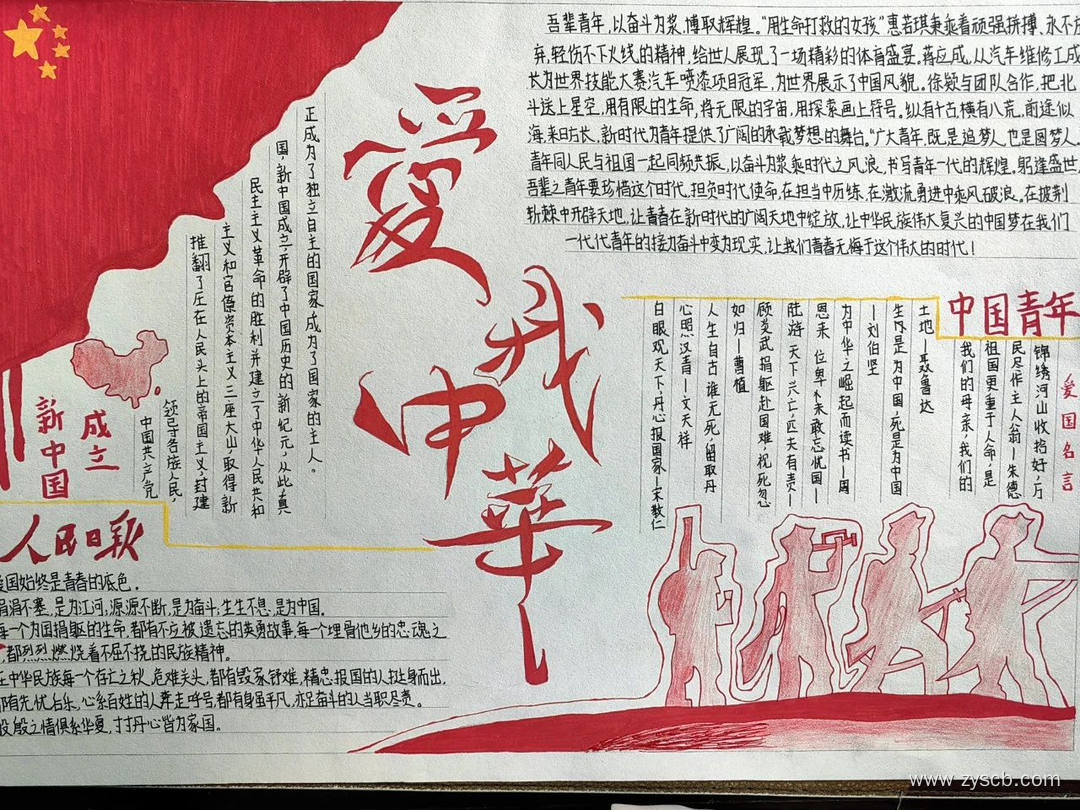 爱我中华
吾辈青年,以奋斗为桨,博取辉煌。“用生命打救的女孩”惠若琪秉乘着顽强拼搏,永不放
弃,轻伤不下火线的精神,给世人展现了一场精彩的体育盛宴。蒋应成,从汽车维修工成
长为世界技能大赛汽车喷漆项目冠军,为世界展示了中国风貌。徐颖与团队合作,把北
斗送上星空,用有限的生命,将无限的宇宙,用探索画上符号。纵有千古,横有八荒,前途似
海,来日方长,新时代为青年提供了广阔的承载梦想的舞台。“广大青年,既是追梦人,也是圆梦人
青年同人民与祖国一起同频共振,以奋斗为桨乘时代之风浪,书写青年一代的辉煌,躬逢盛世,
吾辈之青年要珍惜这个时代,担负时代使命,在担当中历练,在激流勇进中乘风破浪。在披荆
斩棘中开辟天地,让青春在新时代的广阔天地中绽放,让中华民族伟大复兴的中国梦在我们
一代代青年的接力奋斗中变为现实,让我们青春无悔于这个伟大的时代!
成立
新中国
中国共产党
领导各族人民,
推翻了压在人民头上的帝国主义,封建
主义和官僚资本主义三座大山,取得新
民主主义革命的胜利并建立了中华人民共和
国,新中国成立,开辟了中国历史的新纪元,从此真
正成为了独立自主的国家成为了国家的主人。
中国青年
爱国名言
锦绣河山收拾好,万
民尽作主人翁—朱德
祖国更重于人命,是
我们的母亲,我们的
土地—聂鲁达
生是为中国,死是为中国
—刘伯坚
为中华之崛起而读书—周
恩来 位卑未敢忘忧国—
陆游 天下兴亡,匹夫有责—
顾炎武 捐躯赴国难,视死忽
如归—曹植
人生自古谁无死,留取丹
心照汗青—文天祥
白眼观天下,丹心报国家—宋教仁
人民日报
爱国始终是青春的底色。
涓涓不塞,是为江河;源源不断,是为奋斗;生生不息,是为中国。
每一个为国捐躯的生命,都有不应被遗忘的英勇故事,每一个埋骨他乡的忠魂之
,都烈烈燃烧着不屈不挠的民族精神。
在中华民族每一个存亡之秋,危难关头,都有毁家纾难,精忠报国的人挺身而出,
都有先忧后乐,心系百姓的人奔走呼号,都有身虽平凡,亦足奋斗的人当职尽责。
殷殷之情俱系华夏,寸寸丹心皆为家国。
www.zyscb.com